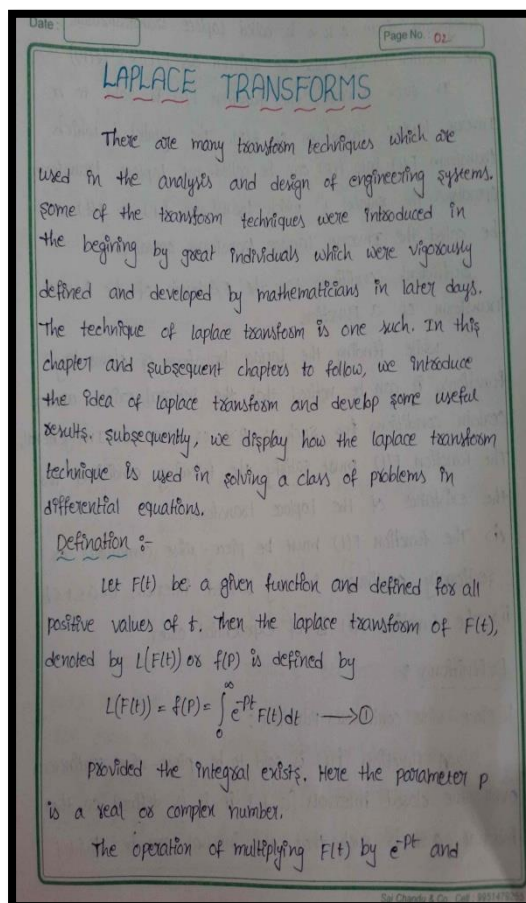 Date :
Page No. 02
LAPLACE TRANSFORMS
There are many transform techniques which are
used in the analysis and design of engineering systems.
Some of the transform techniques were introduced in
the begining by great individuals which were vigorously
defined and developed by mathematicians in later days.
The technique of laplace transform is one such. In this
chapter and subsequent chapters to follow, we introduce
the idea of laplace transform and develop some useful
results. Subsequently, we display how the laplace transform
technique is used in solving a class of problems in
differential equations.
Defination :-
Let F(t) be a given function and defined for all
positive values of t. Then the laplace transform of F(t),
denoted by L(F(t)) or f(P) is defined by
L(F(t)) = f(P) = ∫₀^∞ e^-Pt F(t) dt ⟶ ①
provided the integral exists. Here the parameter p
is a real or complex number.
The operation of multiplying F(t) by e^-Pt and
Sai Chandu & Co. Cell :